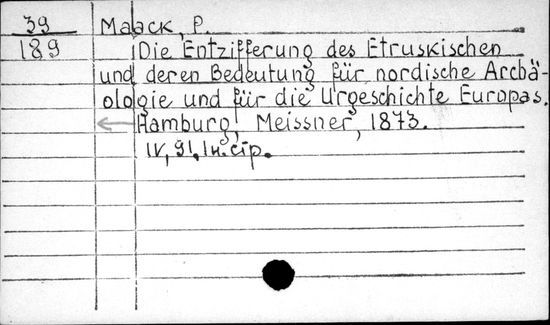 39 Maack, P.
189 Die Entzifferung des Etruskischen
und deren Bedeutung für nordische Archä-
ologie und für die Urgeschichte Europas.
Hamburg, Meissner, 1873.
IV, 91, 1н. стр.